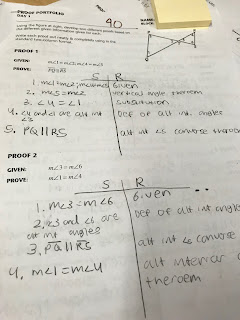 PROOF PORTFOLIO
DAY 1
90
NAME
BLOCK
Using the figure at right, develop two different proofs based on
the different given information given for each.
Write each proof out neatly & completely using in the
standard two-column format.
PROOF 1
GIVEN: m∠1=m∠2; m∠4=m∠3
PROVE: PQ||RS
S R
1. m∠1=m∠2; Given
2. m∠3=m∠2 vertical angle theorem
3. ∠4=∠1 substitution
4. and are alt int Def of alt int. angles
∠3
5. PQ||RS alt int ∠s converse
PROOF 2
GIVEN: m∠3=m∠6
PROVE: m∠1=m∠4
S R
1. m∠3=m∠6 Given
2. ∠3 and ∠6 are Def of alt int angles
alt int angles
3. PQ||RS alt int ∠s converse
4. m∠1=m∠4 alt interior
theroem